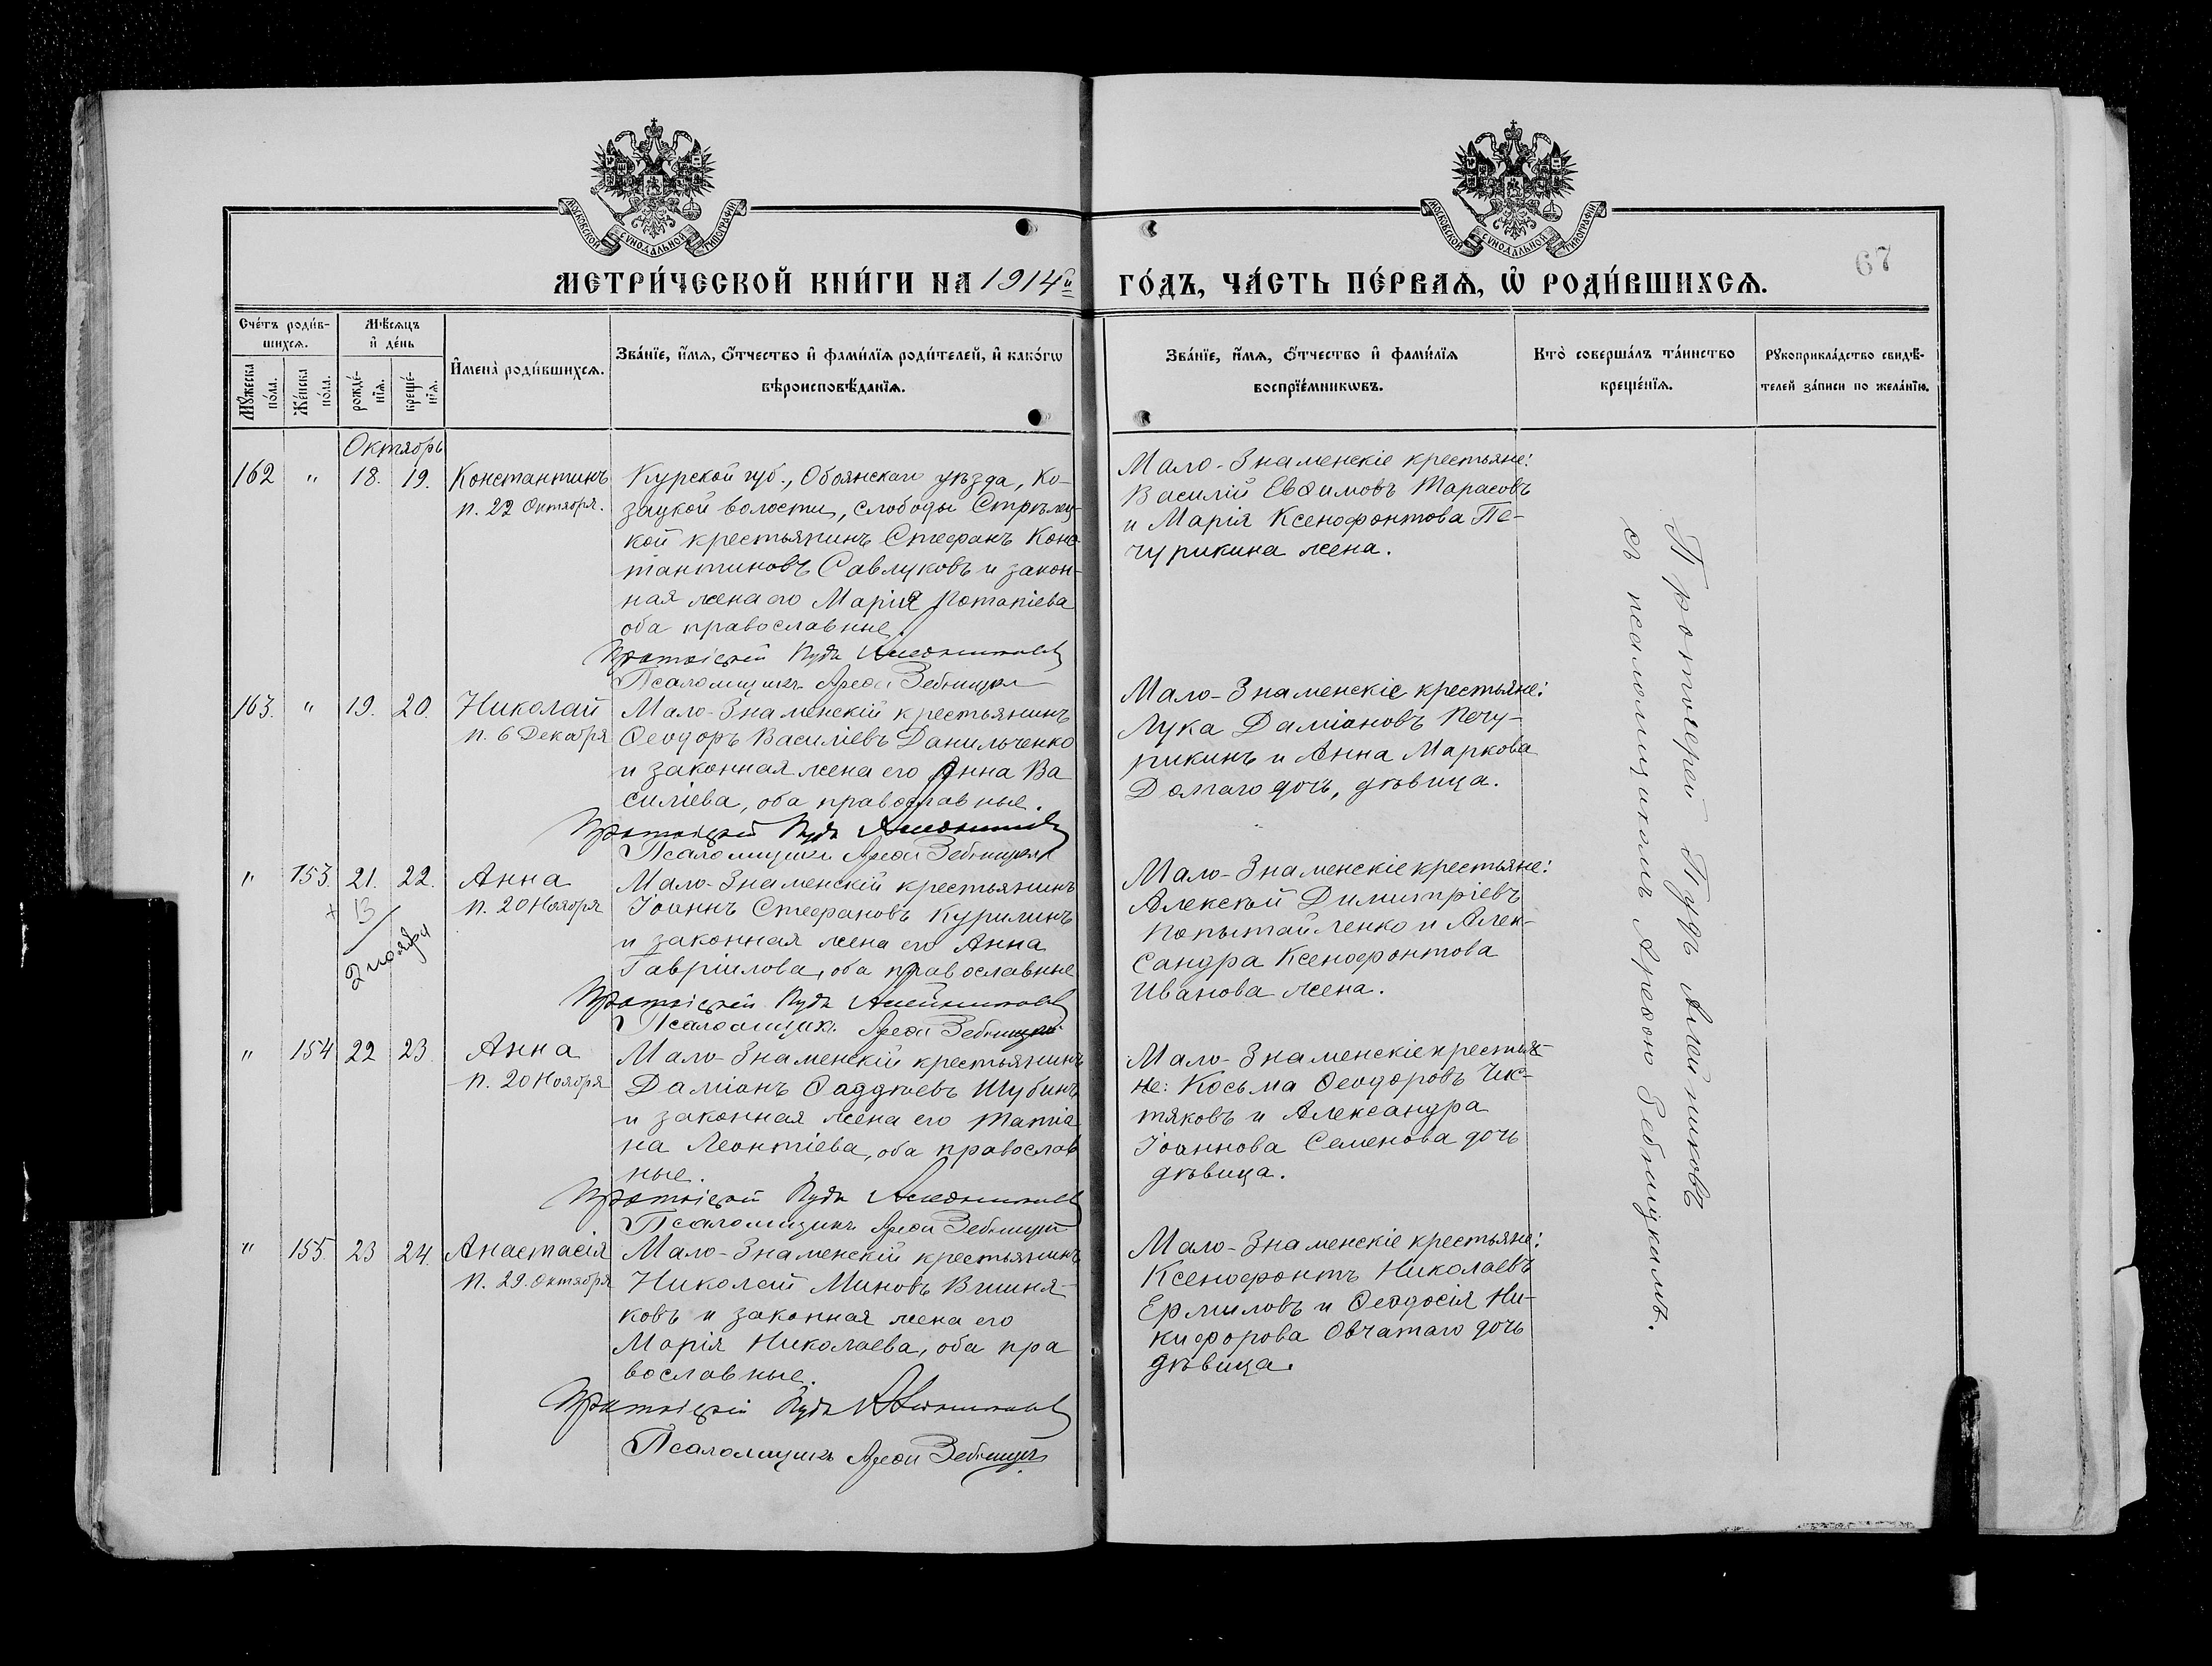 МОСКОВСКОЙ СѴНОДАЛЬНОЙ ТИПОГРАФІИ
МОСКОВСКОЙ СѴНОДАЛЬНОЙ ТИПОГРАФІИ
67
МЕТРИ́ЧЕСКОЙ КНИ́ГИ НА 1914й ГО́ДЪ, ЧА́СТЬ ПЕ́РВАѦ, Ѡ РОДИ́ВШИХСѦ.
Сче́тъ роди́в-
шихсѧ.
Мꙋ́жеска по́ла.
Же́нска по́ла.
Мѣ́сѧцъ
и҆ де́нь
рожде́-
нїѧ.
креще́-
нїѧ.
И҆мена̀ роди́вшихсѧ.
Зва́нїе, и҆́мѧ, ѻ҆́тчество и҆ фами́лїѧ роди́телей, и҆ како́гѡ
вѣроисповѣ́данїѧ.
Зва́нїе, и҆́мѧ, ѻ҆́тчество и҆ фами́лїѧ
воспрїе́мникѡвъ.
Кто̀ соверша́лъ та́инство
креще́нїѧ.
Рꙋкоприкла́дство свидѣ́-
телей за́писи по жела́нїю.
Октябрь
162 " 18. 19. Константинъ
п. 22 Октября.
Курской губ., Обоянскаго уѣзда, Ко-
зацкой волости, слободы Стрѣлец-
кой крестьянинъ Стефанъ Конс
тантиновъ Савлуковъ и закон-
ная жена его Марія Потапіева
оба православные.
Протоіерей Пудъ Алейниковъ
Псаломщикъ Арефа Зебницкій
Мало-Знаменскіе крестьяне:
Василій Евѳимовъ Тарасовъ
и Марія Ксенофонтова Пе-
чурикина жена.
163. " 19. 20. Николай
п. 6 Декабря
Мало-Знаменскій крестьянинъ
Ѳеодоръ Василіевъ Данильченко
и законная жена его Анна Ва
силіева, оба православные.
Протоіерей Пудъ Алейниковъ
Псаломщикъ Арефа Зебницкій
Мало-Знаменскіе крестьяне:
Лука Даміановъ Печу-
рикинъ и Анна Маркова
Долгаго дочь, дѣвица.
" 153. 21. 22. Анна
п. 20 Ноября
+ 13
2 ноября
Мало-Знаменскій крестьянинъ
Іоаннъ Стефановъ Курилинъ
и законная жена его Анна
Гавріилова, оба православные
Протоіерей Пудъ Алейниковъ
Псаломщикъ Арефа Зебницкій
Мало-Знаменскіе крестьяне:
Алексѣй Димитріевъ
Копытайленко и Алек-
сандра Ксенофонтова
Иванова жена.
" 154 22 23. Анна
п. 20 Ноября
Мало-Знаменскій крестьянинъ
Даміанъ Ѳаддѣевъ Шубинъ
и законная жена его Татіа
на Леонтіева, оба православ
ные.
Протоіерей Пудъ Алейниковъ
Псаломщикъ Арефа Зебницкій
Мало-Знаменскіе крестья-
не: Косьма Ѳеодоровъ Чис-
тяковъ и Александра
Іоаннова Семенова дочь
дѣвица.
" 155. 23 24. Анастасія
п. 29. Октября
Мало-Знаменскій крестьянинъ
Николай Миновъ Вишня-
ковъ и законная жена его
Марія Николаева, оба пра
вославные.
Протоіерей Пудъ Алейниковъ
Псаломщикъ Арефа Зебницкій
Мало-Знаменскіе крестьяне:
Ксенофонтъ Николаевъ
Ермиловъ и Ѳеодосія Ни-
кифорова Овчатаго дочь
дѣвица.
Протоіерей Пудъ Алейниковъ
съ псаломщикомъ Арефою Зебницкимъ.